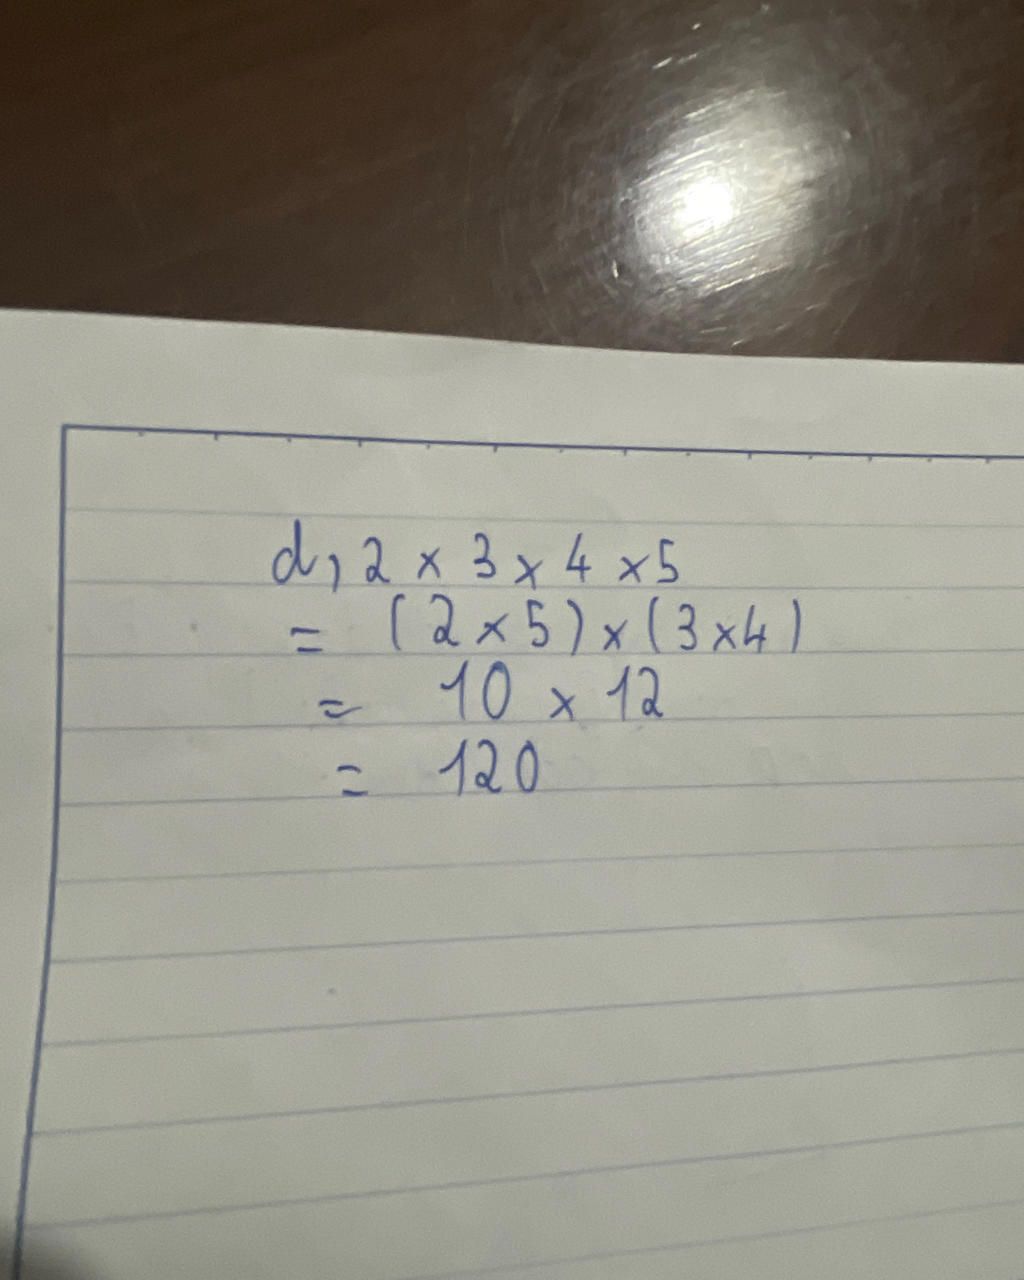 d, 2 × 3 × 4 × 5
= (2 × 5) × (3 × 4)
= 10 × 12
= 120